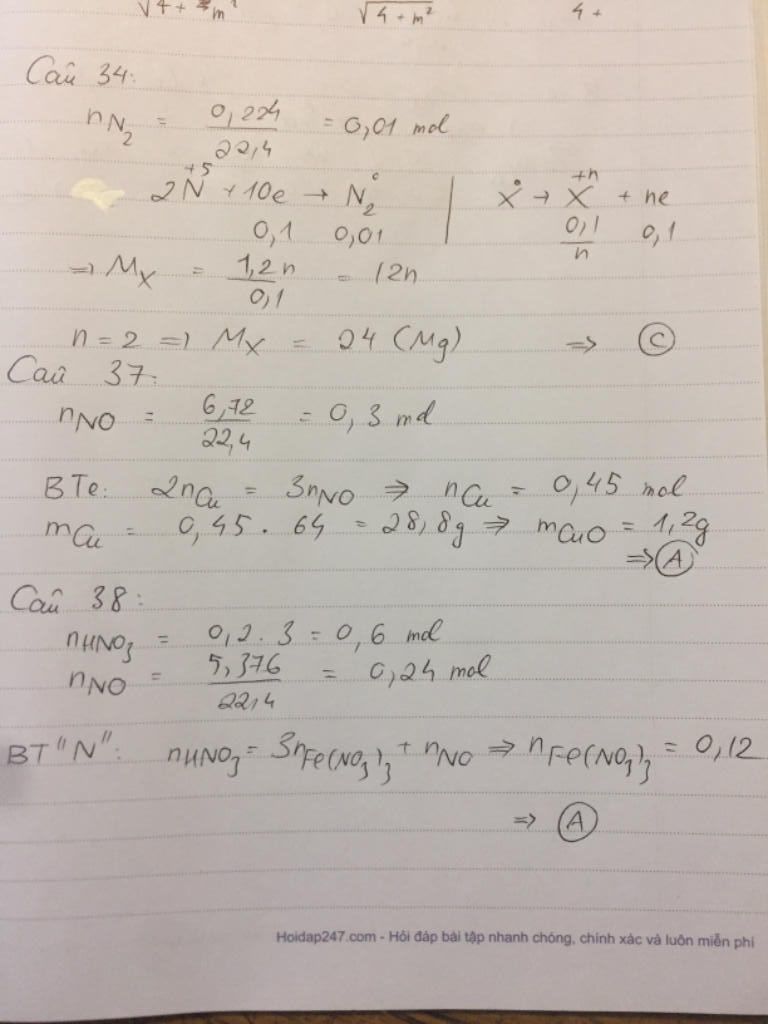 √4 + m² √4 + m² 4 +
Câu 34:
nN₂ = 0,224/22,4 = 0,01 mol
2N⁺⁵ + 10e → N₂⁰ | X⁰ → X⁺ⁿ + ne
0,1 0,01 0,1/n 0,1
=> Mₓ = 1,2n/0,1 = 12n
n = 2 => Mₓ = 24 (Mg) => Ⓒ
Câu 37:
nNO = 6,72/22,4 = 0,3 mol
BTe: 2nCu = 3nNO => nCu = 0,45 mol
mCu = 0,45 . 64 = 28,8g => mCuO = 1,2g
=> Ⓐ
Câu 38:
nHNO₃ = 0,2 . 3 = 0,6 mol
nNO = 5,376/22,4 = 0,24 mol
BT "N": nHNO₃ = 3nFe(NO₃)₃ + nNO => nFe(NO₃)₃ = 0,12
=> Ⓐ
Hoidap247.com - Hỏi đáp bài tập nhanh chóng, chính xác và luôn miễn phí